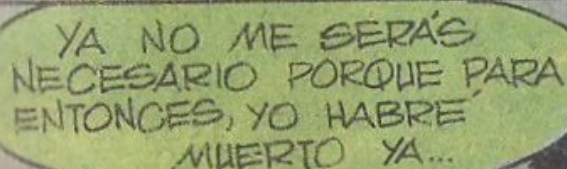 YA NO ME SERÁS
NECESARIO PORQUE PARA
ENTONCES, YO HABRÉ
MUERTO YA...